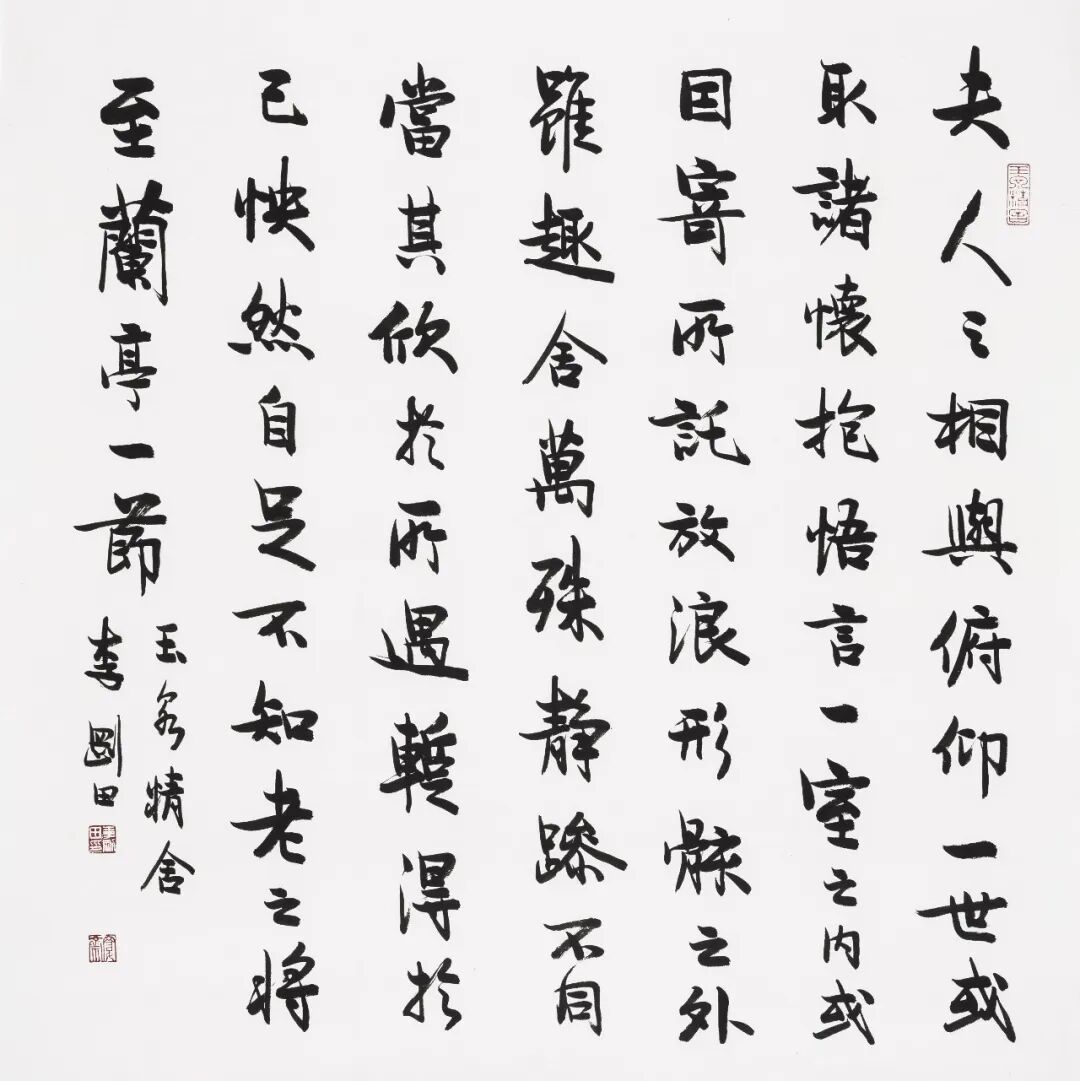 夫人之相與俯仰一世或
取諸懷抱悟言一室之內或
因寄所託放浪形骸之外
雖趣舍萬殊静躁不同
當其欣於所遇蹔得於
己怏然自足不知老之將
至蘭亭一節
玉泉精舍
李剛田